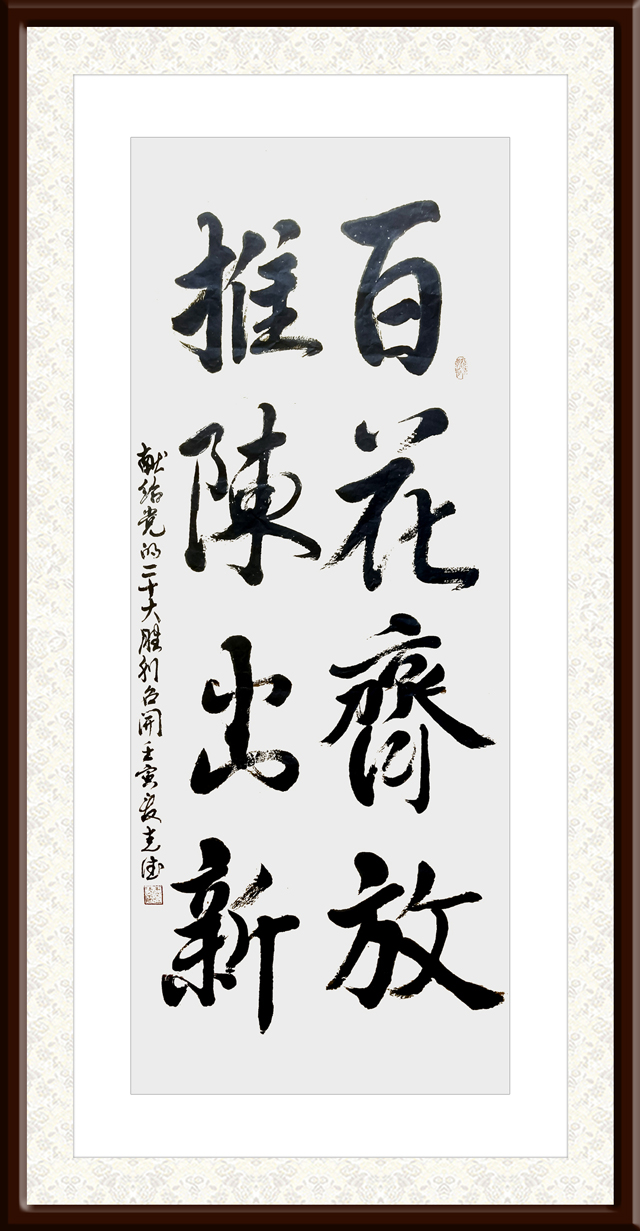 百花齊放
推陳出新
献给党的二十大胜利召开壬寅夏克法